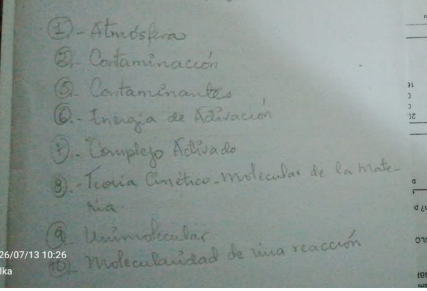 ①- Atmósfera
②- Contaminación
⑤- Contaminantes
⑥.- Energía de Activación
⑦.- Complejo Activado
⑧.- Teoría Cinético-molecular de la mate-
ria.
⑨ Unimolecular
⑩- Molecularidad de una reacción
26/07/13 10:26
lka